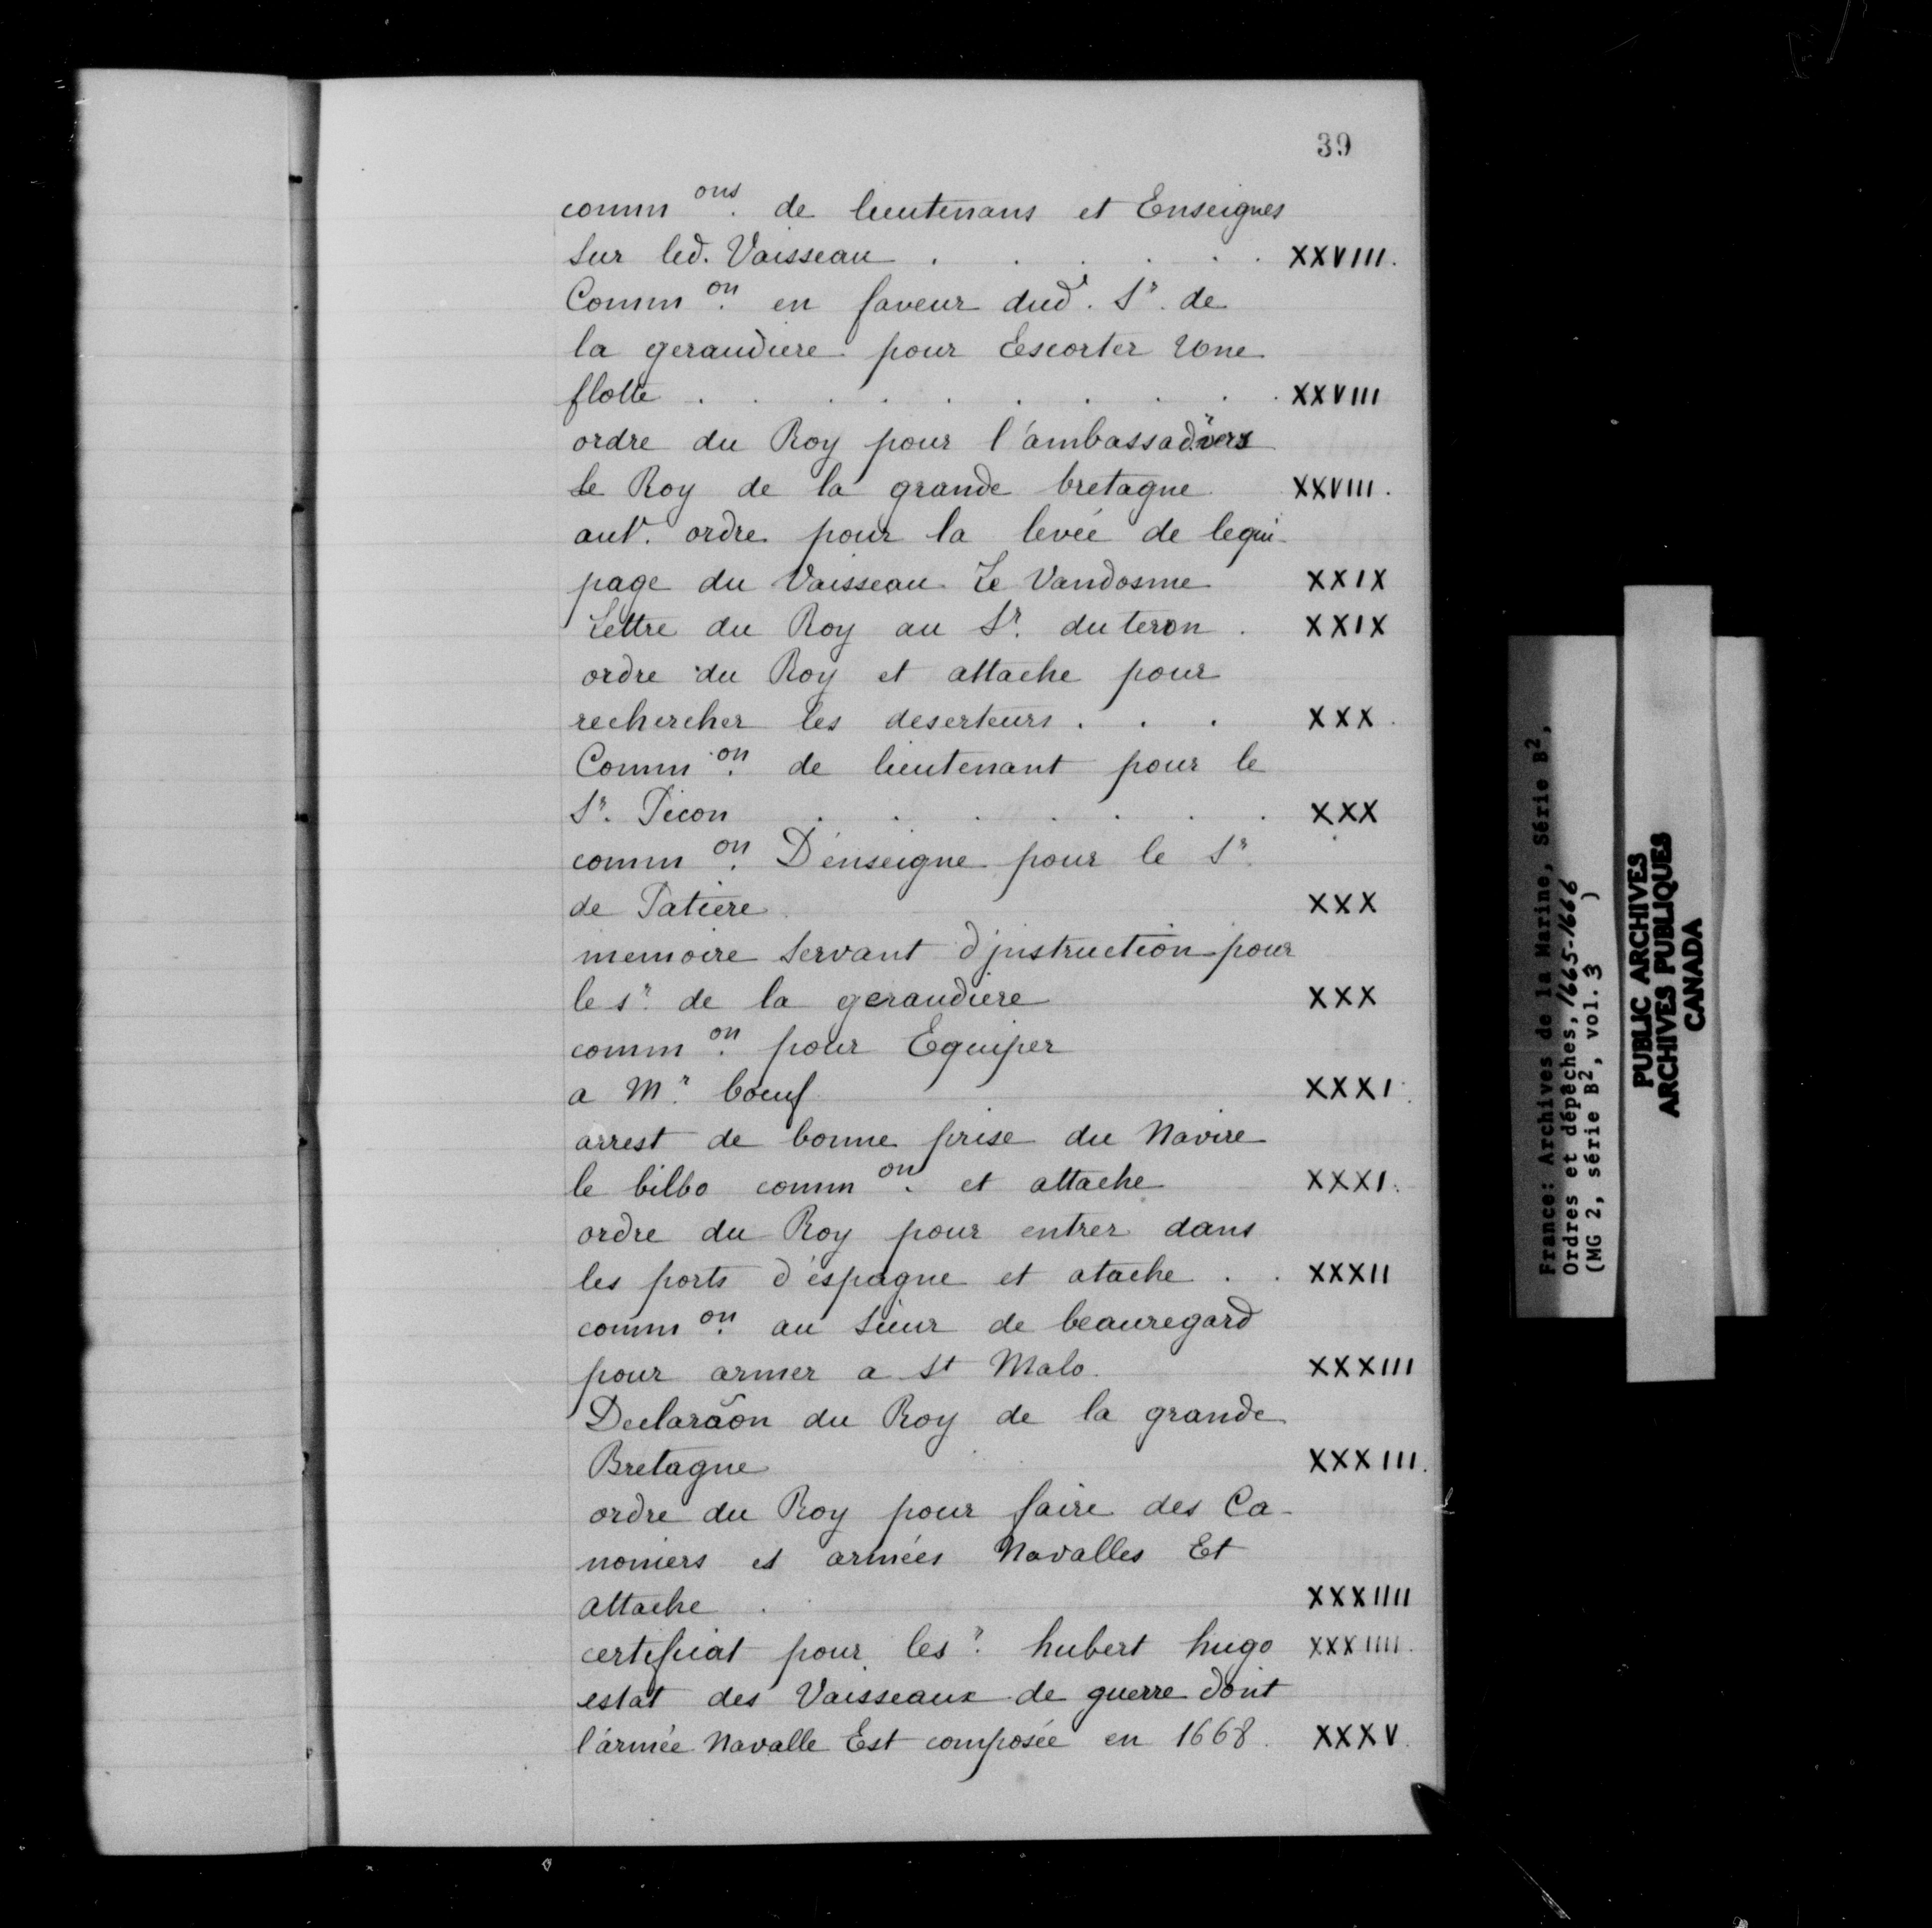 39
comm ons. de lieutenans et Enseignes
Sur led. Vaisseau . . . . . . XXVIII.
Comm on. en faveur dud. Sr. de
la geraudiere pour Escorter Vne
flotte . . . . . . . . . . XXVIII
ordre du Roy pour l'ambassad.r vers
le Roy de la grande bretagne XXVIII.
aut. ordre pour la levée de lequi-
page du Vaisseau Le Vandosme XXIX
Lettre du Roy au Sr. du teron . XXIX
ordre du Roy et attache pour
rechercher les deserteurs . . . XXX.
Comm on. de lieutenant pour le
Sr. Picon . . . . . . . XXX
comm on. D'enseigne pour le Sr.
de Patiere XXX
memoire Servant d'jnstruction pour
le sr. de la geraudiere XXX
comm on. pour Equiper
a Mr. boeuf XXXI.
arrest de bonne prise du Navire
le bilbo comm on. et attache XXXI.
ordre du Roy pour entrer dans
les ports d'espagne et atache . . XXXII
comm on. au Sieur de beauregard
pour armer a St Malo. XXXIII
Declarãon du Roy de la grande
Bretagne XXXIII.
ordre du Roy pour faire des Ca-
noniers et armées Navalles Et
attache . XXXIIII
certificat pour les r. hubert hugo XXXIIII.
estat des Vaisseaux de guerre dont
l'armée Navalle Est composée en 1668. XXXV.
France: Archives de la Marine, Série B2,
Ordres et dépêches, 1665-1666
(MG 2, série B2, vol. 3 )
PUBLIC ARCHIVES
ARCHIVES PUBLIQUES
CANADA